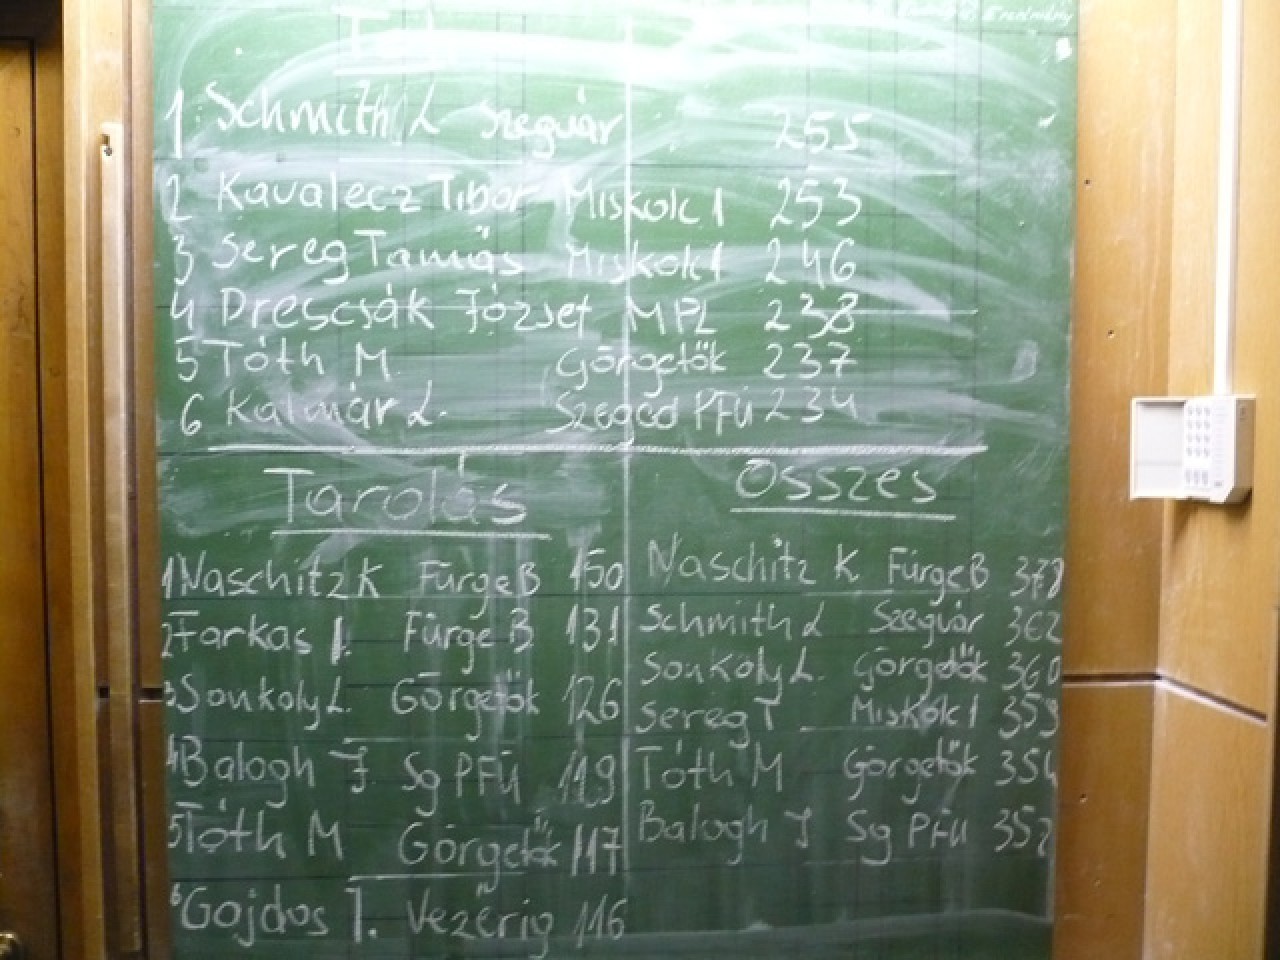 Eredmény
1. Schmith L Szegvár 255
2 Kavalecz Tibor Miskolc 1 253
3 Sereg Tamás Miskolc 1 246
4 Drescsák József MPL 238
5 Tóth M Görgetők 237
6 Kalmár L. Szeged PFÜ 234
Tarolás
1 Naschitz K Fürge B 150
2 Farkas I. Fürge B 131
3 Sonkoly L. Görgetők 126
4 Balogh J Sg PFÜ 119
5 Tóth M Görgetők 117
6 Gojdos T. Vezérig 116
Összes
Naschitz K Fürge B 378
Schmith L Szegvár 362
Sonkoly L. Görgetők 360
Sereg T Miskolc 1 359
Tóth M Görgetők 354
Balogh J Sg PFÜ 352